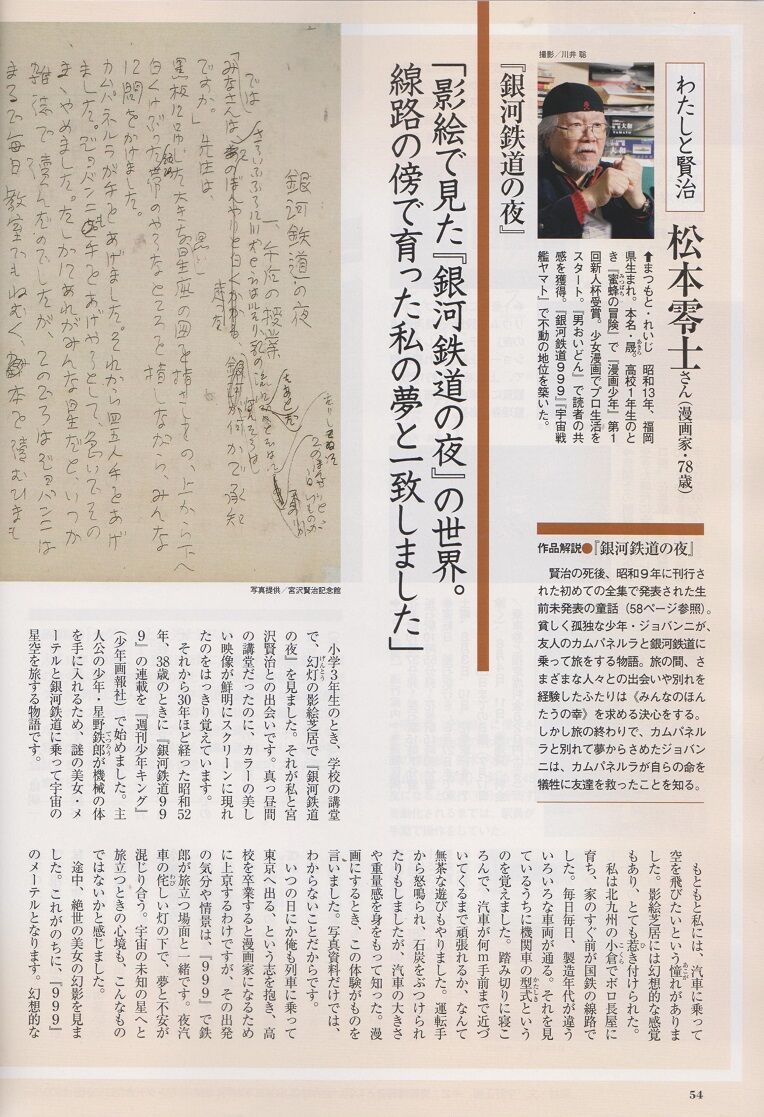 わたしと賢治
松本零士さん(漫画家・78歳)
撮影/川井 聡
⬆まつもと・れいじ 昭和13年、福岡
県生まれ。本名・晟。高校1年生のと
き『蜜蜂の冒険』で『漫画少年』第1
回新人杯受賞。少女漫画でプロ生活を
スタート。『男おいどん』で読者の共
感を獲得。『銀河鉄道999』『宇宙戦
艦ヤマト』で不動の地位を築いた。
『銀河鉄道の夜』
「影絵で見た『銀河鉄道の夜』の世界。
線路の傍で育った私の夢と一致しました」
銀河鉄道の夜
一、午后の授業
では
「みなさんは、
ですか。」先生は、
黒板に
大きな
星座の図を指さし
上から下へ
白くけぶった
帯のやうなところを指しながら、みんな
に問をかけました。
カムパネルラが手をあげました。それから四五人手をあげ
ました。ジョバンニも手をあげやうとして、急いでその
まゝやめました。たしかにあれがみんな星だと、いつか
雑誌で読んだのでしたが、このごろはジョバンニは
まるで毎日教室でもねむく、本を読むひまも
写真提供/宮沢賢治記念館
作品解説●『銀河鉄道の夜』
賢治の死後、昭和9年に刊行さ
れた初めての全集で発表された生
前未発表の童話(58ページ参照)。
貧しく孤独な少年・ジョバンニが、
友人のカムパネルラと銀河鉄道に
乗って旅をする物語。旅の間、さ
まざまな人々との出会いや別れを
経験したふたりは《みんなのほん
たうの幸》を求める決心をする。
しかし旅の終わりで、カムパネル
ラと別れて夢からさめたジョバン
ニは、カムパネルラが自らの命を
犠牲に友達を救ったことを知る。
小学3年生のとき、学校の講堂
で、幻灯の影絵芝居で『銀河鉄道
の夜』を見ました。それが私と宮
沢賢治との出会いです。真っ昼間
の講堂だったのに、カラーの美し
い映像が鮮明にスクリーンに現れ
たのをはっきり覚えています。
それから30年ほど経った昭和52
年、38歳のときに『銀河鉄道99
9』の連載を『週刊少年キング』
(少年画報社)で始めました。主
人公の少年・星野鉄郎が機械の体
を手に入れるため、謎の美女・メ
ーテルと銀河鉄道に乗って宇宙の
星空を旅する物語です。
もともと私には、汽車に乗って
空を飛びたいという憧れがありま
した。影絵芝居には幻想的な感覚
もあり、とても惹き付けられた。
私は北九州の小倉でボロ長屋に
育ち、家のすぐ前が国鉄の線路で
した。毎日毎日、製造年代が違う
いろいろな車両が通る。それを見
ているうちに機関車の型式という
のを覚えました。踏み切りに寝こ
ろんで、汽車が何m手前まで近づ
いてくるまで頑張れるか、なんて
無茶な遊びもやりました。運転手
から怒鳴られ、石炭をぶつけられ
たりもしましたが、汽車の大きさ
や重量感を身をもって知った。漫
画にするとき、この体験がものを
言いました。写真資料だけでは、
わからないことだからです。
いつの日にか俺も列車に乗って
東京へ出る、という志を抱き、高
校を卒業すると漫画家になるため
に上京するわけですが、その出発
の気分や情景は、『999』で鉄
郎が旅立つ場面と一緒です。夜汽
車の侘しい灯の下で、夢と不安が
混じり合う。宇宙の未知の星へと
旅立つときの心境も、こんなもの
ではないかと感じました。
途中、絶世の美女の幻影を見ま
した。これがのちに、『999』
のメーテルとなります。幻想的な
54